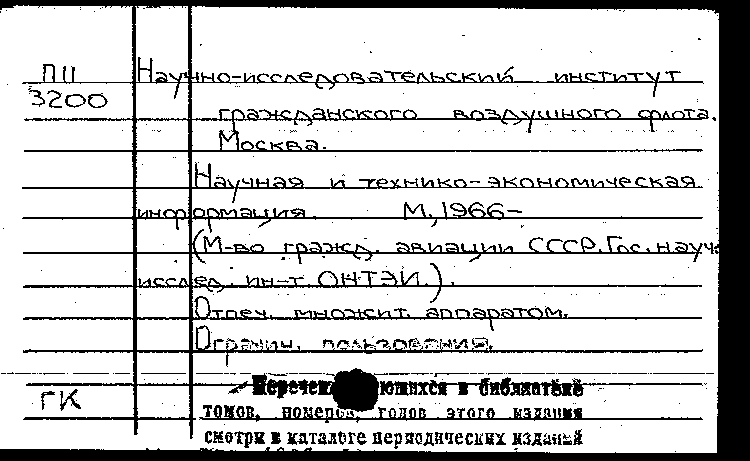 П11 Научно-исследовательский институт
3200 гражданского воздушного флота.
Москва.
Научная и технико-экономическая
информация. М., 1966-
(М-во гражд. авиации СССР. Гос. науч.
исслед. ин-т. ОНТЭИ.).
Отпеч. множит. аппаратом.
Огранич. пользования.
ГК
томов, номеров, годов этого издания
смотри в каталоге периодических изданий